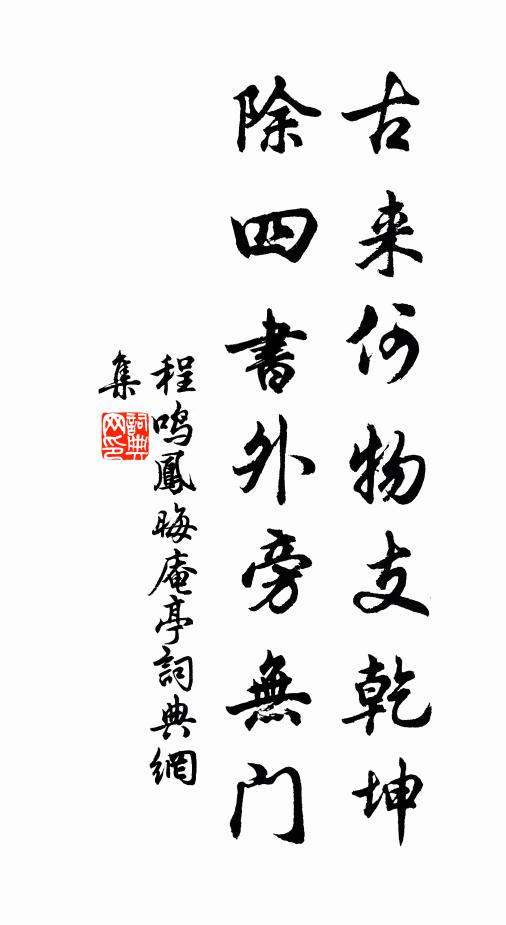 古来何物支乾坤
除四書外旁無門
程鸣鳳晦庵亭詞典網
集
詞典
网印